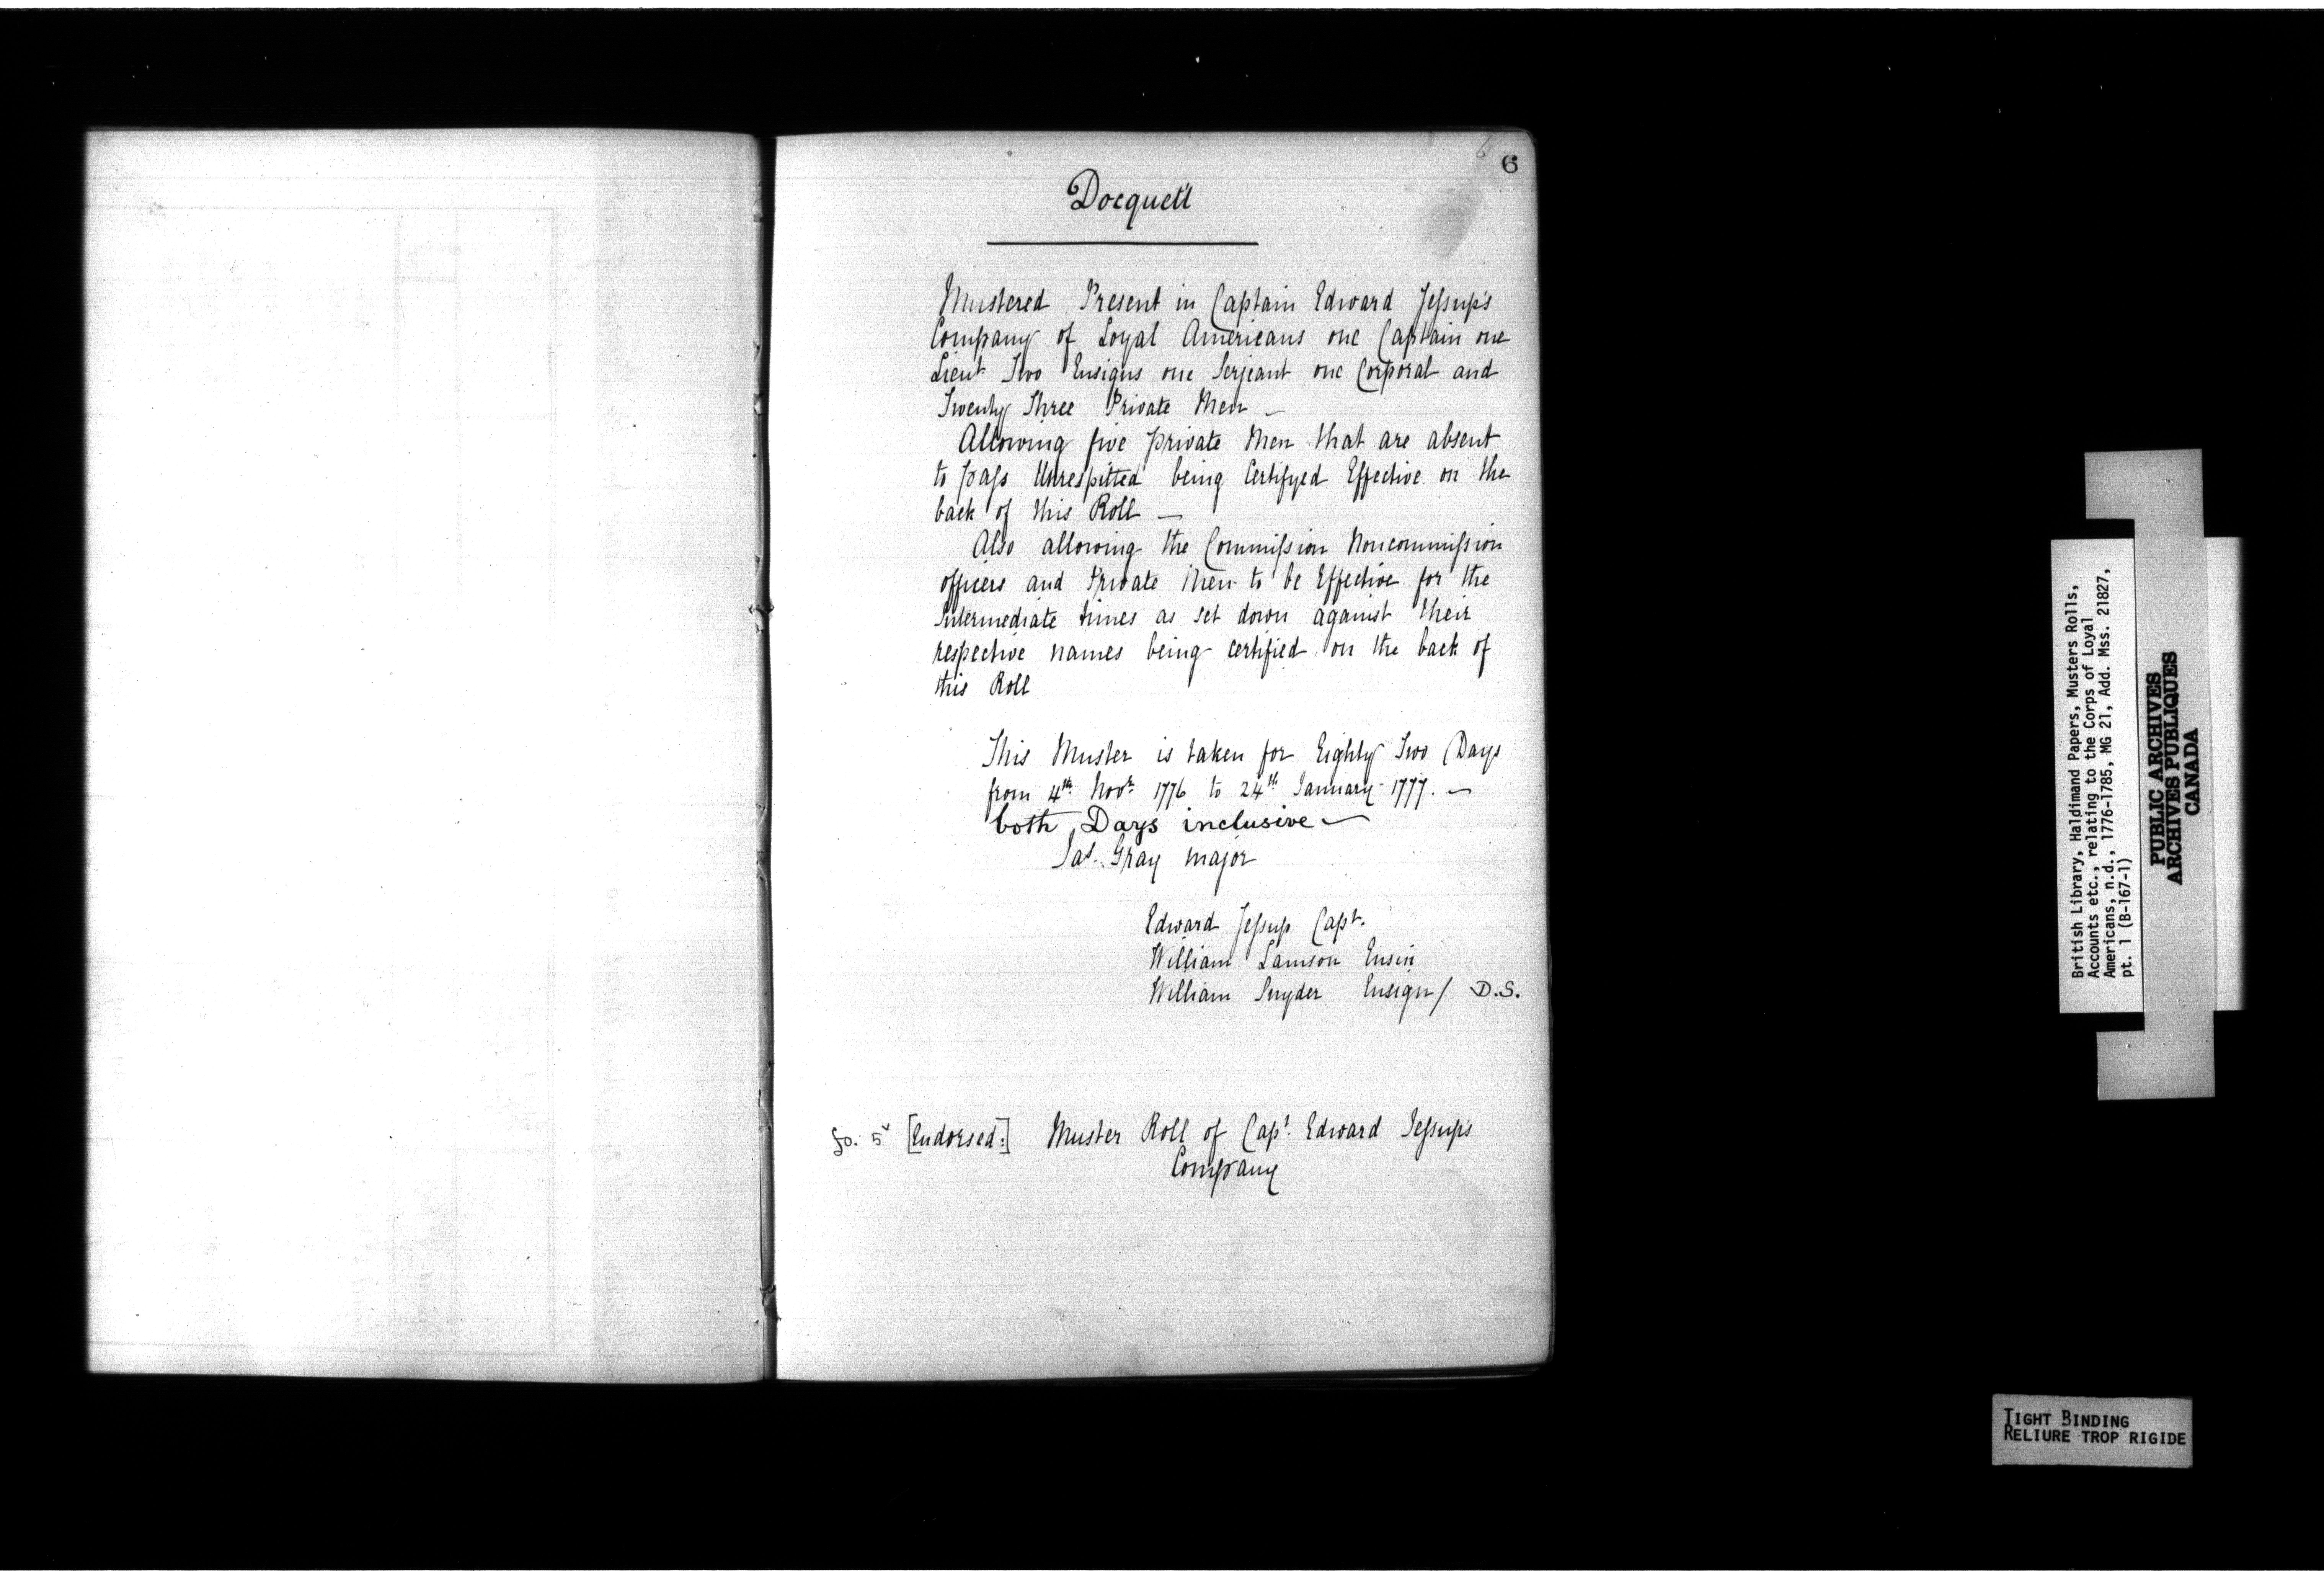 6
Docquett
Mustered Present in Captain Edward Jessup's
Company of Loyal Americans one Captain one
Lieut. Two Ensigns one Serjeant one Corporal and
Twenty Three Private Men —
Allowing five private Men that are absent
to pass Unrespitted being Certifyed Effective on the
back of this Roll —
Also allowing the Commission Noncommission
officers and Private Men to be Effective for the
Intermediate times as set down against their
respective names being certified on the back of
this Roll
This Muster is taken for Eighty Two Days
from 4th Novr 1776 to 24th January 1777. —
both Days inclusive —
Jas. Gray major
Edward Jessup Capt.
William Lamson Ensin
William Snyder Ensign/ D.S.
fo. 5v [Endorsed:] Muster Roll of Capt. Edward Jessup's
Company
British Library, Haldimand Papers, Musters Rolls,
Accounts etc., relating to the Corps of Loyal
Americans, n.d., 1776-1785, MG 21, Add. Mss. 21827,
pt. 1 (B-167-1)
PUBLIC ARCHIVES
ARCHIVES PUBLIQUES
CANADA
TIGHT BINDING
RELIURE TROP RIGIDE